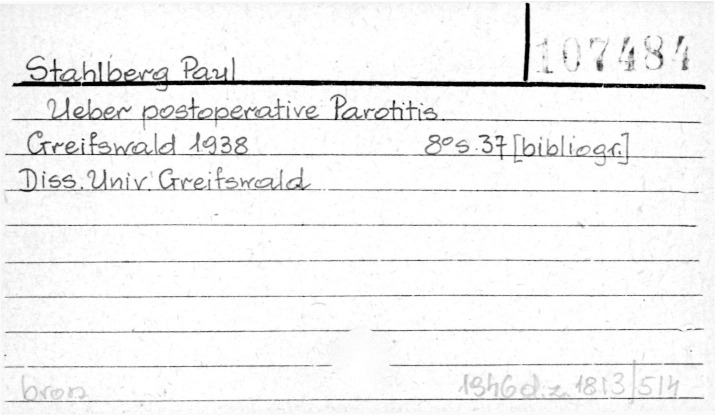 107484
Stahlberg Paul
Ueber postoperative Parotitis.
Greifswald 1938 8° s. 37 [bibliogr.]
Diss. Univ. Greifswald
bron 1946 d. z. 1813/514